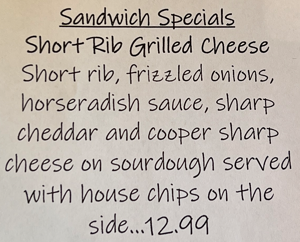 Sandwich Specials
Short Rib Grilled Cheese
Short rib, frizzled onions,
horseradish sauce, sharp
cheddar and cooper sharp
cheese on sourdough served
with house chips on the
side...12.99